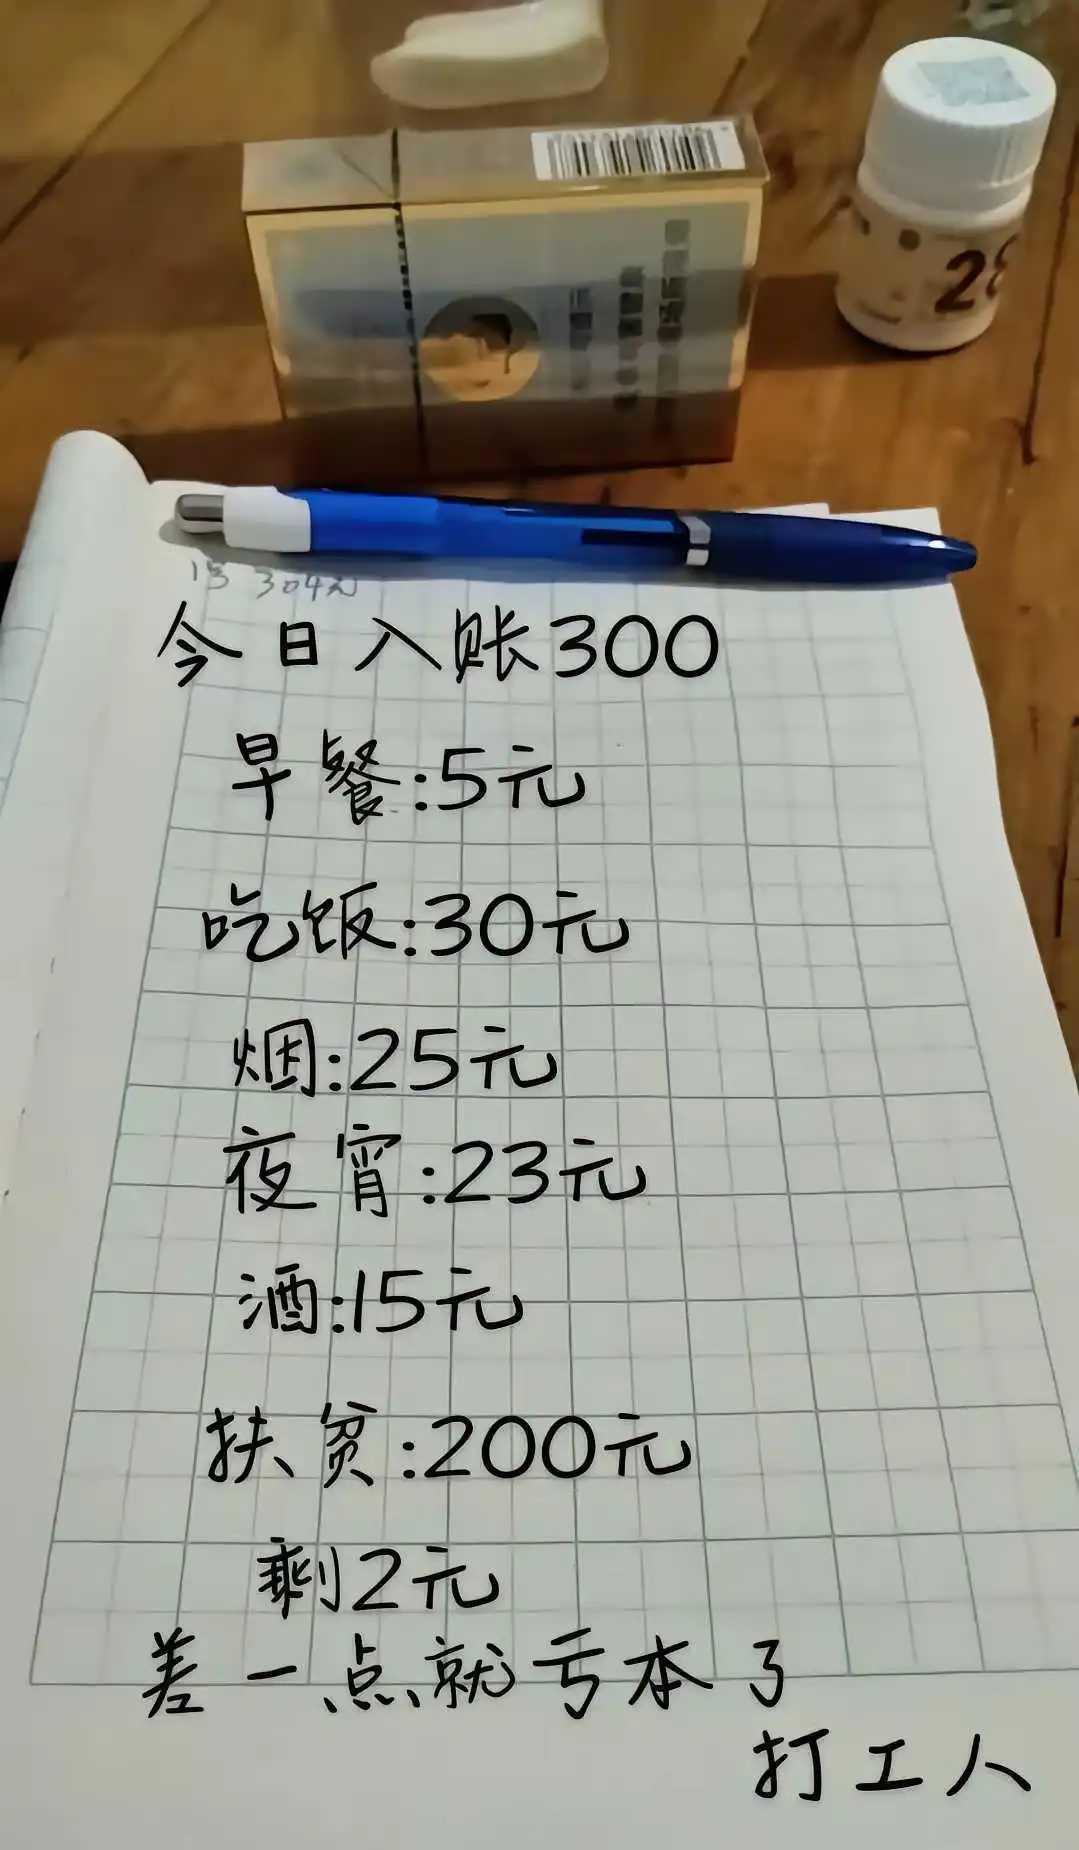 28
1号 304元
今日入账300
早餐:5元
吃饭:30元
烟:25元
夜宵:23元
酒:15元
扶贫:200元
剩2元
差一点就亏本了
打工人